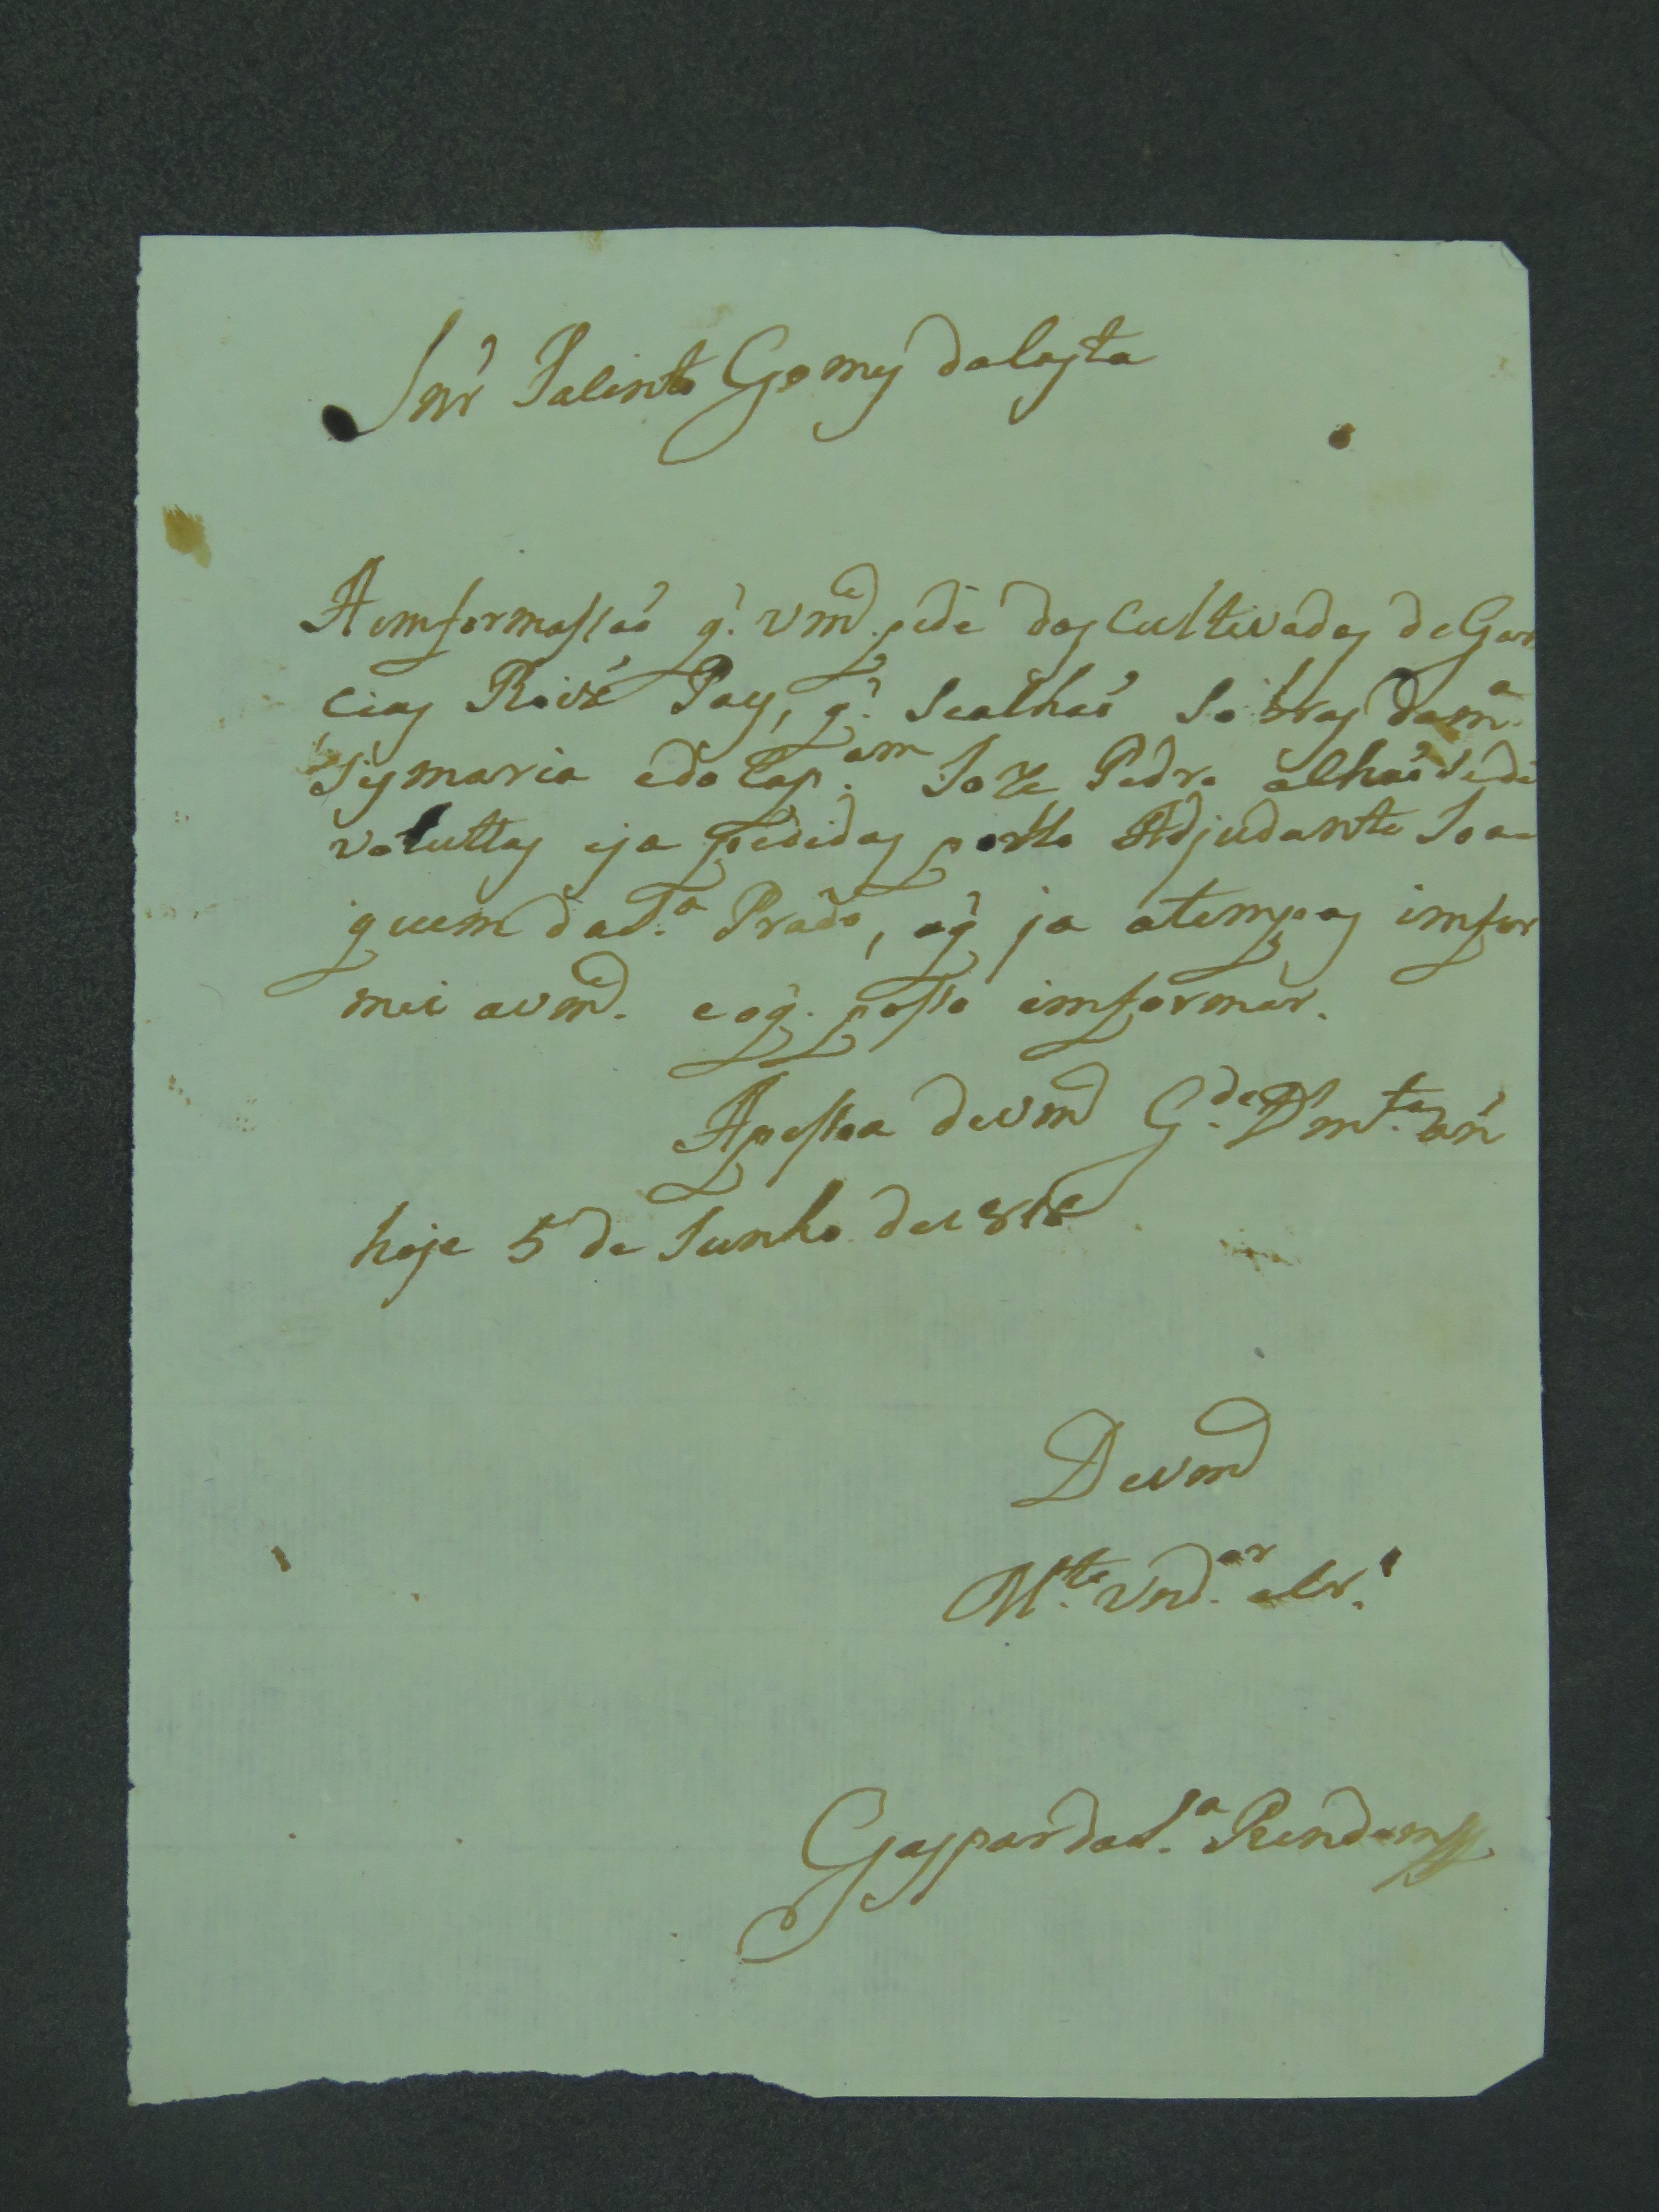 Snr̃ Jacinto Gomes da Costa
A imformassaõ q̃. Vmce. pede dos Cultivados de Gar
cias Roiz̃ Pais, q̃. Se alhaõ Sobras da mª
Sysmaria e do Cap.am Joze Pedro alhaõ Se de
volutas e ja pedidas pello Adjudante Joa
quem da S.ª Prado, o q̃ ja a tempos imfor
mei a vmce. e o q̃. posso imformar.
A pessoa de vmce G.de Ds̃ m.tos an̄s
hoje 5 de Junho de 1818
De vmce
M.to Vnd.or e Cr.º
Gaspar da S.ª Rendom